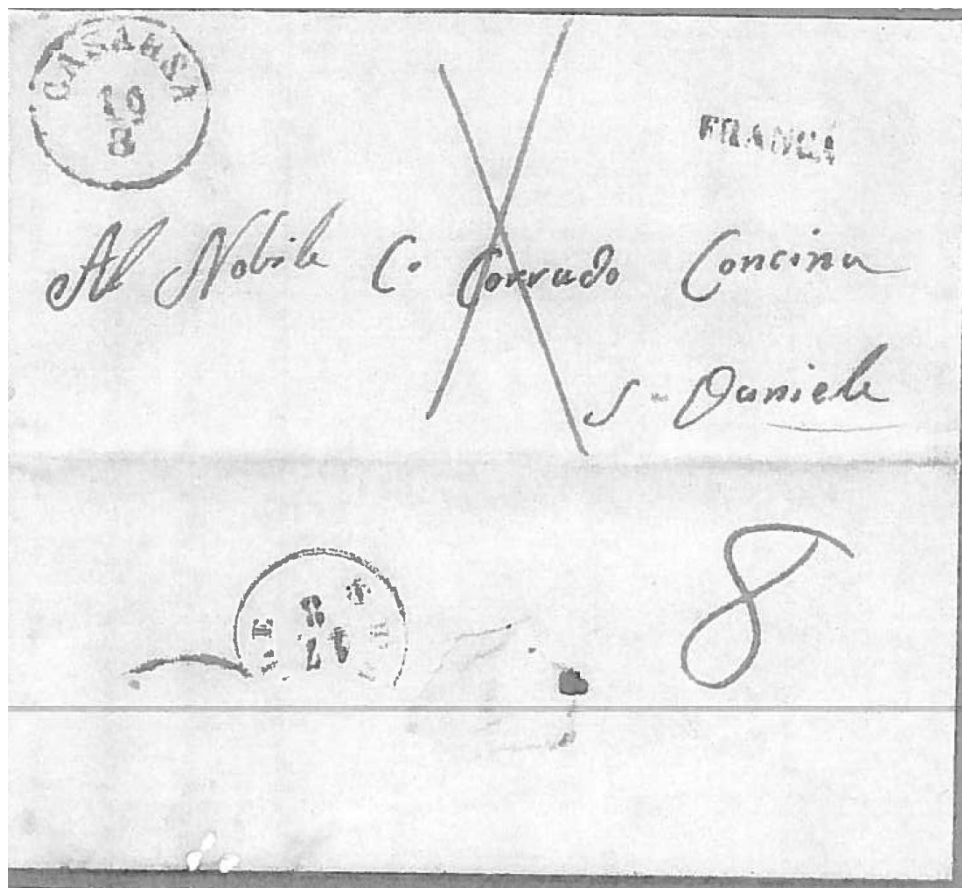 CASARSA
19
8
FRANCA
Al Nobile C. Corrado Concina
S. Daniele
8